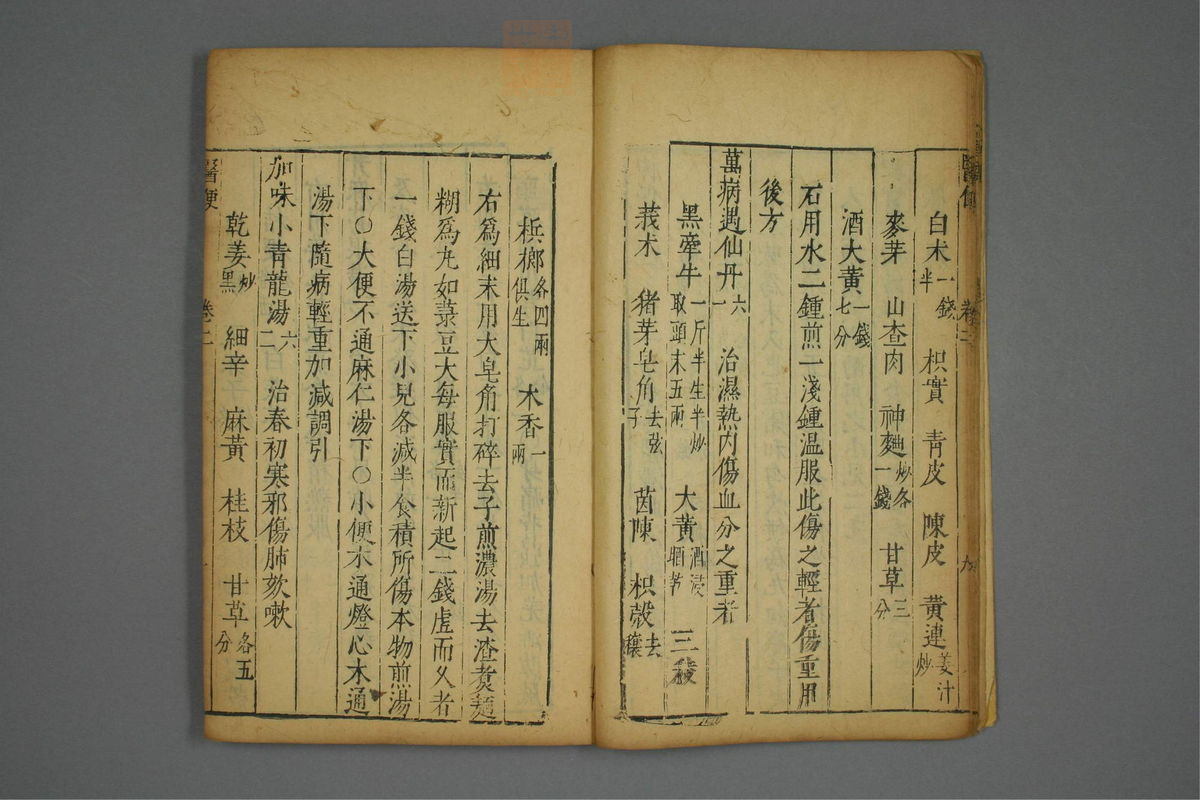 醫便 卷二 九
白朮一錢半 枳實 青皮 陳皮 黃連姜汁炒
麥芽 山查肉 神麯炒各一錢 甘草三分
酒大黃一錢七分
右用水二鍾煎一淺鍾温服此傷之輕者傷重用
後方
萬病遇仙丹六一 治濕熱內傷血分之重者
黑牽牛一斤半生半炒取頭末五兩 大黃酒浸晒芳 三稜
莪朮 猪芽皂角去弦子 茵陳 枳殼去穰
梹榔各四兩俱生 木香一兩
右爲細末用大皂角打碎去子煎濃湯去渣煑麺
糊爲丸如菉豆大每服實而新起二錢虛而久者
一錢白湯送下小兒各减半食積所傷本物煎湯
下○大便不通麻仁湯下○小便不通燈心木通
湯下隨病輕重加减調引
加味小青龍湯六二 治春初寒邪傷肺欬嗽
乾姜炒黑 細辛 麻黃 桂枝 甘草各五分
醫便 卷二